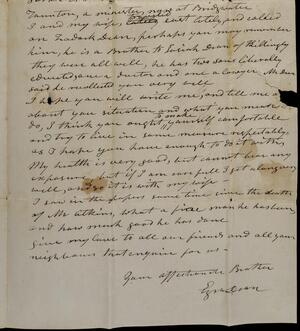 Taunton, a minister, now at Bridgwater
I and my wife, went lately, and called
on Zadock Dean, perhaps you may remember
him, he is a Brother to Isaiah Dean of Killingly
they were all well, he has two sons liberally
educated one a doctor and one a Lawyer. Mr Dean
said he recollected you very well
I hope you will write me, and tell me all
about you situation and what you mean to
do, I think you ought to make yourself comfortable
and try to live in some measure respectably,
as I hope you have enough to do it with,
My health is very good, but cannot bear any
exposure, but if I am careful I get along very
well, and so it is with my wife
I saw in the papers some time since the death
of Mr Atkins, what a fine man he has been
and how much good he has done
give my love to all our friends and all your
neighbours that enquire for us—
Your affectionate Brother
Ezra Dean